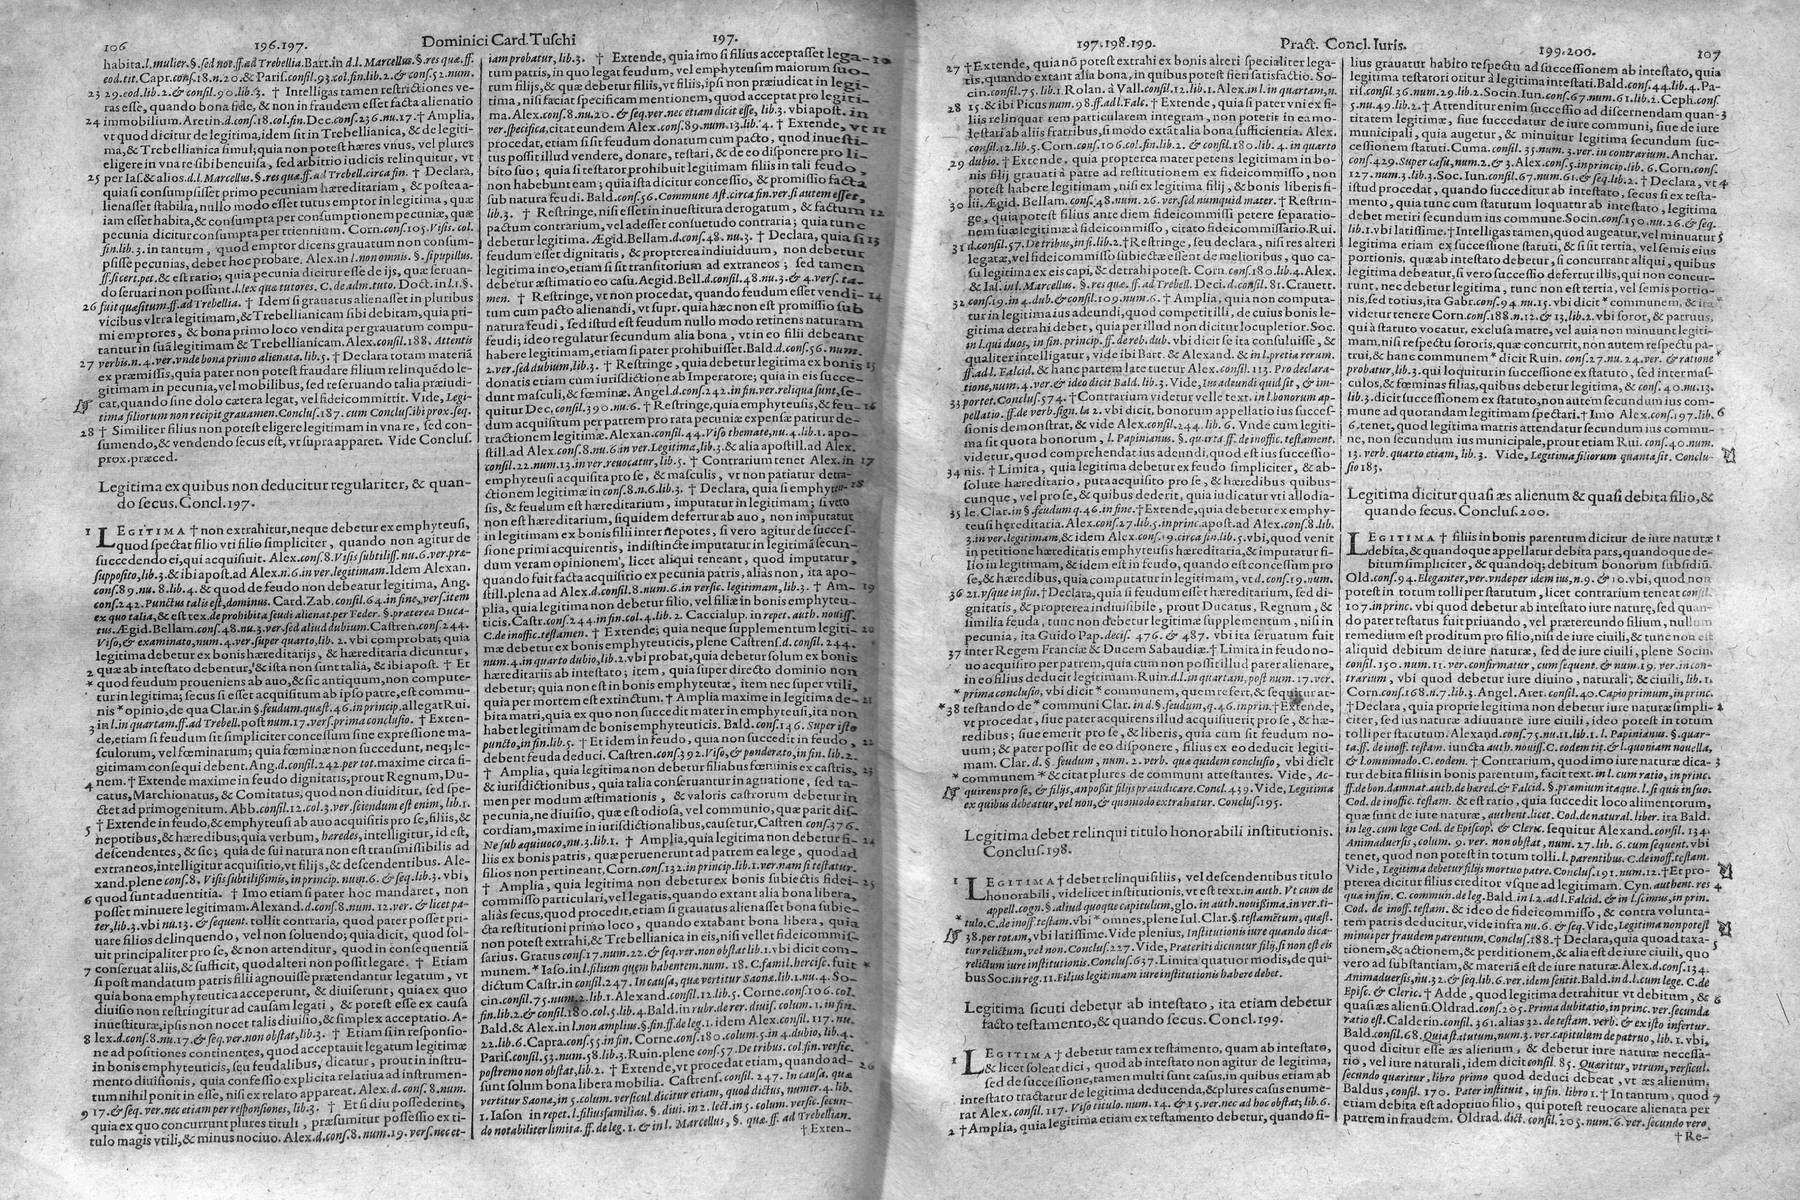 106 196.197. Dominici Card. Tuschi 197.
habita.l. mulier.§. sed not.ff.ad Trebellia. Bart. in d.l. Marcellus.§. res quæ.ff.
eod.tit. Capr.cons.18.n.20.& Paris.consil.93.col.fin.lib.2.& cons.52.num.
23 29.cod.lib.2.& consil.90.lib.3. † Intelligas tamen restrictiones ve-
ras esse, quando bona fide, & non in fraudem esset facta alienatio
24 immobilium. Aretin.d.cons.18.col.fin. Dec.cons.236.nu.17. † Amplia,
vt quod dicitur de legitima, idem sit in Trebellianica, & de legiti-
ma, & Trebellianica simul; quia non potest hæres vnus, vel plures
eligere in vna re sibi beneuisa, sed arbitrio iudicis relinquitur, vt
25 per Ias. & alios.d.l. Marcellus.§. res quæ.ff.ad Trebell.circa fin. † Declara,
quia si consumpsisset primo pecuniam hæreditariam, & postea a-
lienasset stabilia, nullo modo esset tutus emptor in legitima, quæ
iam esset habita, & consumpta per consumptionem pecuniæ, quæ
pecunia dicitur consumpta per triennium. Corn.cons.105. Visis. col.
fin.lib.3. in tantum, quod emptor dicens grauatum non consum-
psisse pecunias, debet hoc probare. Alex.in l. non omnis. §. si pupillus.
ff. si cert.pet. & est ratio; quia pecunia dicitur esse de ijs, quæ seruan-
do seruari non possunt. l. lex quæ tutores. C. de adm. tuto. Doct. in l.1.§.
26 fuit quæsitum.ff.ad Trebellia. † Idem si grauatus alienasset in pluribus
vicibus vltra legitimam, & Trebellianicam sibi debitam, quia pri-
mi emptores, & bona primo loco vendita per grauatum compu-
tantur in suã legitimam & Trebellianicam. Alex.consil.188. Attentis
27 verbis.n.4.ver.vnde bona primo alienata.lib.5. † Declara totam materiã
ex præmissis, quia pater non potest fraudare filium relinquẽdo le-
gitimam in pecunia, vel mobilibus, sed reseruando talia præiudi-
cat, quando sine dolo cætera legat, vel fideicommittit. Vide, Legi-
tima filiorum non recipit grauamen. Conclus.187. cum Conclus.ibi prox.seq.
28 † Similiter filius non potest eligere legitimam in vna re, sed con-
sumendo, & vendendo secus est, vt supra apparet. Vide Conclus.
prox.præced.
Legitima ex quibus non deducitur regulariter, & quan-
do secus. Concl.197.
1 LEGITIMA † non extrahitur, neque debetur ex emphyteusi,
quod spectat filio vti filio simpliciter, quando non agitur de
succedendo ei, qui acquisiuit. Alex.cons.8. Visis subtiliss. nu.6. ver.præ-
supposito, lib.3. & ibi apost.ad Alex.n.6.in ver.legitimam. Idem Alexan.
cons.89. nu.8.lib.4. & quod de feudo non debeatur legitima, Ang.
cons.242. Punctus talis est, dominus. Card. Zab.consil.64.in fine, vers.item
ex quo talia, & est tex.de prohibita feudi alienat.per Feder. §.præterea Duca-
tus. Ægid.Bellam.cons.48.nu.3.ver.sed aliud dubium. Castren.cons.244.
Viso, & examinato, num.4.ver.super quarto, lib.2. vbi comprobat; quia
legitima debetur ex bonis hæreditarijs, & hæreditaria dicuntur,
quæ ab intestato debentur, & ista non sunt talia, & ibi apost. † Et
2 quod feudum proueniens ab auo, & sic antiquum, non compute-
* tur in legitima; secus si esset acquisitum ab ipso patre, est commu-
nis * opinio, de qua Clar. in §. feudum.quæst.46.in princip. allegat Rui.
3 in l.in quartam.ff.ad Trebell.post num.17.vers.prima conclusio. † Exten-
de, etiam si feudum sit simpliciter concessum sine expressione ma-
sculorum, vel fœminarum; quia fœminæ non succedunt, neq; le-
gitimam consequi debent. Ang.d.consil.242.per tot.maxime circa fi-
4 nem. † Extende maxime in feudo dignitatis, prout Regnum, Du-
catus, Marchionatus, & Comitatus, quod non diuiditur, sed spe-
ctat ad primogenitum. Abb.consil.12.col.3.ver.sciendum est enim, lib.1.
5 † Extende in feudo, & emphyteusi ab auo acquisitis pro se, filiis, &
nepotibus, & hæredibus; quia verbum, hæredes, intelligitur, id est,
descendentes, & sic; quia de sui natura non est transmissibilis ad
extraneos, intelligitur acquisitio, vt filijs, & descendentibus. Ale-
xand.plene cons.8. Visis subtilissimis, in princip.num.6.& seq.lib.3. vbi,
6 quod sunt aduentitia. † Imo etiam si pater hoc mandaret, non
posset minuere legitimam. Alexand.d.cons.8.num.12.ver. & licet pa-
ter, lib.3. vbi nu.13. & sequent. tollit contraria, quod pater posset pri-
uare filios delinquendo, vel non soluendo; quia dicit, quod sol-
uit principaliter pro se, & non attenditur, quod in consequentiã
conseruat aliis, & sufficit, quod alteri non possit legare. † Etiam
7 si post mandatum patris filii agnouisse prætendantur legatum, vt
quia bona emphyteutica acceperunt, & diuiserunt, quia ex quo
diuisio non restringitur ad causam legati, & potest esse ex causa
inuestituræ, ipsis non nocet talis diuisio, & simplex acceptatio. A-
8 lex.d.cons.8.nu.17.& seq.ver.non obstat, lib.3. † Etiam si in responsio-
ne ad positiones continentes, quod acceptauit legatum legitimæ
in bonis emphyteuticis, seu feudalibus, dicatur, prout in instru-
mento diuisionis, quia confessio explicita relatiua ad instrumen-
tum nihil ponit in esse, nisi ex relato appareat. Alex. d. cons.8. num.
9 17. & seq. ver. nec etiam per responsiones, lib.3. † Et si diu possederint,
quia ex quo concurrunt plures tituli, præsumitur possessio ex ti-
tulo magis vtili, & minus nociuo. Alex.d.cons.8.num.19. vers.nec et-
iam probatur, lib.3. † Extende, quia imo si filius acceptasset lega- 10
tum patris, in quo legat feudum, vel emphyteusim maiorum suo-
rum filijs, & quæ debetur filiis, vt filiis, ipsi non præiudicat in legi-
tima, nisi faciat specificam mentionem, quod acceptat pro legiti-
ma. Alex.cons.8.nu.20. & seq.ver.nec etiam dicit esse, lib.3. vbi apost. in
ver.specifica, citat eundem Alex.cons.89.num.13.lib.4. † Extende, vt 11
procedat, etiam si sit feudum donatum cum pacto, quod inuesti-
tus possit illud vendere, donare, testari, & de eo disponere pro li-
bito suo; quia si testator prohibuit legitimam filiis in tali feudo,
non habebunt eam; quia ista dicitur concessio, & promissio facta
sub natura feudi. Bald.cons.56. Commune Ast.circa fin.ver.si autem esset,
lib.3. † Restringe, nisi esset in inuestitura derogatum, & factum 12
pactum contrarium, vel adesset consuetudo contraria; quia tunc
debetur legitima. Ægid.Bellam.d.cons.48. nu.3. † Declara, quia si 13
feudum esset dignitatis, & propterea indiuiduum, non debetur
legitima in eo, etiam si sit transitorium ad extraneos; sed tamen
debetur æstimatio eo casu. Aegid.Bell.d.cons.48.nu.3.& 4.vers.ta-
men. † Restringe, vt non procedat, quando feudum esset vendi- 14
tum cum pacto alienandi, vt supr. quia hæc non est promissio sub
natura feudi, sed istud est feudum nullo modo retinens naturam
feudi; ideo regulatur secundum alia bona, vt in eo filii debeant
habere legitimam, etiam si pater prohibuisset. Bald.d.cons.56.num.
2.ver.sed dubium, lib.3. † Restringe, quia debetur legitima ex bonis 15
donatis etiam cum iurisdictione ab Imperatore; quia in eis succe-
dunt masculi, & fœminæ. Angel.d.cons.242.in fin.ver.reliqua sunt, se-
quitur Dec.consil.390.nu.6. † Restringe, quia emphyteusis, & feu- 16
dum acquisitum per patrem pro rata pecuniæ expensæ patitur de-
tractionem legitimæ. Alexan.consil.44. Viso themate, nu.4.lib.1. apo-
still.ad Alex.cons.8.nu.6.in ver.Legitima, lib.3. & alia apostill.ad Alex.
consil.22.num.13.in ver.reuocatur, lib.5. † Contrarium tenet Alex. in 17
emphyteusi acquisita pro se, & masculis, vt non patiatur detra-
ctionem legitimæ in cons.8.n.6.lib.3. † Declara, quia si emphyteu- 18
sis, & feudum est hæreditarium, imputatur in legitimam; si vero
non est hæreditarium, siquidem defertur ab auo, non imputatur
in legitimam ex bonis filii inter nepotes, si vero agitur de succes-
sione primi acquirentis, indistincte imputatur in legitimã secun-
dum veram opinionem, licet aliqui teneant, quod imputatur,
quando fuit facta acquisitio ex pecunia patris, aliàs non, ita apo-
still.plena ad Alex.d.cons.8.num.6.in versic. legitimam, lib.3. † Am- 19
plia, quia legitima non debetur filio, vel filiæ in bonis emphyteu-
ticis. Castr.cons.244.in fin.col.4.lib.2. Caccialup. in repet. auth. nouiss.
C.de inoffic.testamen. † Extende; quia neque supplementum legiti- 20
mæ debetur ex bonis emphyteuticis, plene Castrens.d.consil.244.
num.4.in quarto dubio, lib.2. vbi probat, quia debetur solum ex bonis
hæreditariis ab intestato; item, quia super directo dominio non
debetur; quia non est in bonis emphyteutæ, item nec super vtili,
quia per mortem est extinctum. † Amplia maxime in legitima de- 21
bita matri, quia ex quo non succedit mater in emphyteusi, ita non
habet legitimam de bonis emphyteuticis. Bald.cons.146. Super isto
puncto, in fin.lib.5. † Et idem in feudo, quia non succedit in feudo, 22
debent feuda deduci. Castren.cons.392. Viso, & ponderato, in fin. lib.2.
† Amplia, quia legitima non debetur filiabus fœminis ex castris, 23
& iurisdictionibus, quia talia conseruantur in agnatione, sed ta-
men per modum æstimationis, & valoris castrorum debetur in
pecunia, ne diuisio, quæ est odiosa, vel communio, quæ parit dis-
cordiam, maxime in iurisdictionalibus, causetur, Castren cons.376.
Ne sub æquiuoco, nu.3.lib.1. † Amplia, quia legitima non debetur fi- 24
liis ex bonis patris, quæ peruenerunt ad patrem ea lege, quod ad
filios non pertineant. Corn.cons.132.in princip.lib.1.ver.nam si testatur.
† Amplia, quia legitima non debetur ex bonis subiectis fidei- 25
commisso particulari, vel legatis, quando extant alia bona libera,
aliàs secus, quod procedit, etiam si grauatus alienasset bona subie-
cta restitutioni primo loco, quando extabant bona libera, quia
non potest extrahi, & Trebellianica in eis, nisi vellet fideicommis-
sarius. Gratus cons.17.num.22.& seq.ver.non obstat lib.1. vbi dicit com-
munem. * Iaso. in l.filium quem habentem.num.18. C.famil.hercisc. fuit *
dictum Castr.in consil.247. In causa, quæ vertitur Saonæ.lib.1.nu.4. So-
cin.consil.75.num.2.lib.1. Alexand.consil.12.lib.5. Corne.cons.106.col.
fin.lib.2.& consil.180.col.5.lib.4. Bald.in rubr.de rer. diuis. colum.1.in fin.
Bald.& Alex.in l.non amplius.§.fin.ff.de leg.1. idem Alex.consil.117. nu.
22.lib.6. Capra.cons.55.in fin. Corne.cons.180.colum.5.in 4.dubio, lib.4.
Paris.consil.53.num.58.lib.3. Ruin.plene cons.57. De tribus.col.fin.versic.
postremo non obstat, lib.2. † Extende, vt procedat etiam, quando ad- 26
sunt solum bona libera mobilia. Castrens.consil.247. In causa, quæ
vertitur Saonæ, in 5.colum.versicul.dicitur etiam, quod dictus, numer.4.lib.
1. Iason in repet.l.filiusfamilias.§. diui. in 2. lect.in 5.colum. versic.secun-
do notabiliter limita.ff.de leg.1. & in l. Marcellus, §. quæ.ff. ad Trebellian.
† Exten-
197.198.199. Pract. Concl. Iuris. 199.200. 107
27 † Extende, quia nõ potest extrahi ex bonis alteri specialiter lega-
tis, quando extant alia bona, in quibus potest fieri satisfactio. So-
cin.consil.75.lib.1. Rolan. à Vall.consil.12.lib.1. Alex.in l.in quartam, n.
28 15.& ibi Picus num.98.ff.ad l. Falc. † Extende, quia si pater vni ex fi-
liis relinquat rem particularem integram, non poterit in ea mo-
lestari ab aliis fratribus, si modo extãt alia bona sufficientia. Alex.
consil.12.lib.5. Corn.cons.106.col.fin.lib.2. & consil.180. lib.4. in quarto
29 dubio. † Extende, quia propterea mater petens legitimam in bo-
nis filij grauati à patre ad restitutionem ex fideicommisso, non
potest habere legitimam, nisi ex legitima filij, & bonis liberis fi-
30 lii. Ægid. Bellam.cons.48.num.26. ver.sed numquid mater. † Restrin-
ge, quia potest filius ante diem fideicommissi petere separatio-
nem suæ legitimæ à fideicommisso, citato fideicommissario. Rui.
31 d.consil.57. De tribus, in fi.lib.2. † Restringe, seu declara, nisi res alteri
legatæ, vel fideicommisso subiectæ essent de melioribus, quo ca-
su legitima ex eis capi, & detrahi potest. Corn.cons.180.lib.4. Alex.
& Ias. in l. Marcellus. §. res quæ.ff. ad Trebell. Deci.d.consil.81. Crauett.
32 cons.19.in 4.dub.& consil.109.num.6. † Amplia, quia non computa-
tur in legitima ius adeundi, quod competit illi, de cuius bonis le-
gitima detrahi debet, quia per illud non dicitur locupletior. Soc.
in l.qui duos, in fin.princip.ff.de reb.dub. vbi dicit se ita consuluisse, &
qualiter intelligatur, vide ibi Bart. & Alexand. & in l.pretia rerum.
ff.ad l.Falcid. & hanc partem late tuetur Alex.consil.113. Pro declara-
tione, num.4.ver.& ideo dicit Bald.lib.3. Vide, Ius adeundi quid sit, & im-
33 portet. Conclus.574. † Contrarium videtur velle text. in l.bonorum ap-
pellatio.ff.de verb.sign.la 2. vbi dicit, bonorum appellatio ius succes-
sionis demonstrat, & vide Alex.consil.244.lib.6. Vnde cum legiti-
ma sit quota bonorum, l. Papinianus. §. quarta.ff. de inoffic. testament.
videtur, quod comprehendat ius adeundi, quod est ius successio-
34 nis. † Limita, quia legitima debetur ex feudo simpliciter, & ab-
solute hæreditario, puta acquisito pro se, & hæredibus quibus-
cunque, vel pro se, & quibus dederit, quia iudicatur vti allodia-
35 le. Clar.in §.feudum q.46.in fine. † Extende, quia debetur ex emphy-
teusi hereditaria. Alex.cons.27.lib.5.in princ.apost.ad Alex.cons.8.lib.
3.in ver.legitimam, & idem Alex.cons.19.circa fin.lib.5. vbi, quod venit
in petitione hæreditatis emphyteusis hæreditaria, & imputatur fi-
lio in legitimam, & idem est in feudo, quando est concessum pro
se, & hæredibus, quia computatur in legitimam, vt d.cons.19.num.
36 21. vsque in fin. † Declara, quia si feudum esset hæreditarium, sed di-
gnitatis, & propterea indiuisibile, prout Ducatus, Regnum, &
similia feuda, tunc non debetur legitimæ supplementum, nisi in
pecunia, ita Guido Pap.decis. 476. & 487. vbi ita seruatum fuit
37 inter Regem Franciæ & Ducem Sabaudiæ. † Limita in feudo no-
uo acquisito per patrem, quia cum non possit illud pater alienare,
in eo filius deducit legitimam. Ruin.d.l.in quartam, post num.17. ver.
* prima conclusio, vbi dicit * communem, quem refert, & sequitur at-
*38 testando de * communi Clar. in d.§.feudum, q.46.in prin. † Extende,
vt procedat, siue pater acquirens illud acquisiuerit pro se, & hæ-
redibus; siue emerit pro se, & liberis, quia cum sit feudum no-
uum; & pater possit de eo disponere, filius ex eo deducit legiti-
mam. Clar. d. §. feudum, num.2. verb. quæ quidem conclusio, vbi dicit
* communem * & citat plures de communi attestantes. Vide, Ac-
quirens pro se, & filijs, an possit filijs præiudicare. Concl.439. Vide, Legitima
ex quibus debeatur, vel non, & quomodo extrahatur. Conclus.195.
Legitima debet relinqui titulo honorabili institutionis.
Conclus.198.
1 LEGITIMA † debet relinqui filiis, vel descendentibus titulo
honorabili, videlicet institutionis, vt est text. in auth. Vt cum de
appell.cogn.§.aliud quoque capitulum, glo. in auth.nouissima.in ver.ti-
* tulo. C. de inoff.testam. vbi * omnes, plene Iul. Clar.§.testamẽtum, quæst.
38.per totam, vbi latissime. Vide plenius, Institutionis iure quando dica-
tur relictum, vel non. Conclus.227. Vide, Præteriti dicuntur filij, si non est eis
relictum iure institutionis. Conclus.637. Limita quatuor modis, de qui-
bus Soc.in reg.11. Filius legitimam iure institutionis habere debet.
Legitima sicuti debetur ab intestato, ita etiam debetur
facto testamento, & quando secus. Concl.199.
1 LEGITIMA † debetur tam ex testamento, quam ab intestato,
& licet soleat dici, quod ab intestato non agitur de legitima,
sed de successione, tamen multi sunt casus, in quibus etiam ab
intestato tractatur de legitima deducenda, & plures casus enume-
rat Alex.consil.117. Viso titulo.num.14. & 15.ver.nec ad hoc obstat, lib.6.
2 † Amplia, quia legitima etiam ex testamento debetur, quando fi-
lius grauatur habito respectu ad successionem ab intestato, quia
legitima testatori oritur à legitima intestati. Bald.cons.44.lib.4. Pa-
ris.consil.36.num.29.lib.2. Socin.Iun.cons.67.num.61.lib.2. Ceph.cons.
5.nu.49.lib.2. † Attenditur enim successio ad discernendam quan- 3
titatem legitimæ, siue succedatur de iure communi, siue de iure
municipali, quia augetur, & minuitur legitima secundum suc-
cessionem statuti. Cuma.consil.35.num.3.ver.in contrarium. Anchar.
cons.429. Super casu, num.2.& 3. Alex.cons.5.in princip.lib.6. Corn.cons.
127.num.3.lib.3. Soc.Iun.consil.67.num.61.& seq.lib.2. † Declara, vt 4
istud procedat, quando succeditur ab intestato, secus si ex testa-
mento, quia tunc cum statutum loquatur ab intestato, legitima
debet metiri secundum ius commune. Socin.cons.150.nu.26.& seq.
lib.1. vbi latissime. † Intelligas tamen, quod augeatur, vel minuatur 5
legitima etiam ex successione statuti, & si sit tertia, vel semis eius
portionis, quæ ab intestato debetur, si concurrant aliqui, quibus
legitima debeatur, si vero successio defertur illis, qui non concur-
runt, nec debetur legitima, tunc non est tertia, vel semis portio-
nis, sed totius, ita Gabr.cons.94.nu.15. vbi dicit * communem, & ita *
videtur tenere Corn.cons.188.n.12.& 13.lib.2. vbi soror, & patruus,
qui à statuto vocatur, exclusa matre, vel auia non minuunt legiti-
mam, nisi respectu sororis, quæ concurrit, non autem respectu pa-
trui, & hanc communem * dicit Ruin. cons.27.nu.24.ver.& ratione *
probatur, lib.3. qui loquitur in successione ex statuto, sed inter mas-
culos, & fœminas filias, quibus debetur legitima, & cons.40.nu.13.
lib.3. dicit successionem ex statuto, non autem secundum ius com-
mune ad quotandam legitimam spectari. † Imo Alex.cons.197.lib. 6
6.tenet, quod legitima matris attendatur secundum ius commu-
ne, non secundum ius municipale, prout etiam Rui. cons.40.num.
13. verb. quarto etiam, lib.3. Vide, Legitima filiorum quanta sit. Conclu-
sio 183.
Legitima dicitur quasi æs alienum & quasi debita filio, &
quando secus. Conclus.200.
LEGITIMA † filiis in bonis parentum dicitur de iure naturæ 1
debita, & quandoque appellatur debita pars, quandoque de-
bitum simpliciter, & quandoq; debitum bonorum subsidiũ.
Old.cons.94. Eleganter, ver.vnde per idem ius, n.9. & 10. vbi, quod non
potest in totum tolli per statutum, licet contrarium teneat consil.
107.in princ. vbi quod debetur ab intestato iure naturæ, sed quan-
do pater testatus fuit priuando, vel prætereundo filium, nullum
remedium est proditum pro filio, nisi de iure ciuili, & tunc non est
aliquid debitum de iure naturæ, sed de iure ciuili, plene Socin.
consil.150.num.11.ver.confirmatur, cum sequent. & num.19. ver.in con-
trarium, vbi quod debetur iure diuino, naturali, & ciuili, lib.1.
Corn.cons.168.n.7.lib.3. Angel. Aret.consil.40. Capio primum, in princ.
† Declara, quia proprie legitima non debetur iure naturæ simpli- 2
citer, sed ius naturæ adiuuante iure ciuili, ideo potest in totum
tolli per statutum. Alexand.cons.75.nu.11.lib.1. l. Papinianus. §.quar-
ta.ff. de inoff. testam. iuncta auth. nouiss. C. eodem tit. & l.quoniam nouella,
& l.omnimodo. C. eodem. † Contrarium, quod imo iure naturæ dica- 3
tur debita filiis in bonis parentum, facit text. in l.cum ratio, in princ.
ff.de bon.damnat.auth.de hæred.& Falcid. §.præmium itaque. l.si quis in suo.
Cod. de inoffic. testam. & est ratio, quia succedit loco alimentorum,
quæ sunt de iure naturæ, authent.licet. Cod.de natural.liber. ita Bald.
in leg. cum lege Cod. de Episcop. & Cleric. sequitur Alexand.consil. 134.
Animaduersis, colum. 9. ver. non obstat, num.27. lib. 6. cum sequent. vbi
tenet, quod non potest in totum tolli. l. parentibus. C. de inoff. testam.
Vide, Legitima debetur filijs mortuo patre. Conclus.191.num.12. † Et pro-
pterea dicitur filius creditor vsque ad legitimam. Cyn. authent. res 4
qua in fin. C. commun. de leg. Bald. in l.2.ad l.Falcid. & in l.scimus, in prin.
Cod. de inoff. testam. & ideo de fideicommisso, & contra volunta-
tem patris deducitur, vide infra nu.6. & seq. Vide, Legitima non potest
minui per fraudem parentum. Conclus.188. † Declara, quia quoad taxa- 5
tionem, & actionem, & perditionem, & alia est de iure ciuili, quo
vero ad substantiam, & materiã est de iure naturæ. Alex.d.cons.134.
Animaduersis, nu.32.& seq.lib.6.ver.idem sentit. Bald.in d.l.cum lege. C. de
Episc. & Cleric. † Adde, quod legitima detrahitur vt debitum, & 6
quasi æs alienũ. Oldrad.cons.205. Prima dubitatio, in princ.ver.secunda
ratio est. Calderin.consil.361.alias 32. de testam. verb. & ex isto infertur.
Bald.consil.68. Quia statutum, num.3.ver.capitulum de patruo, lib.1. vbi,
quod dicitur esse æs alienum, & debetur iure naturæ necessa-
rio, vel iure naturali, idem dicit consil.85. Quæritur, vtrum, versicul.
secundo quæritur, libro primo quod deduci debeat, vt æs alienum,
Baldus, consil.170. Pater instituit, in fin. libro 1. † In tantum, quod 7
etiam debita est adoptiuo filio, qui potest reuocare alienata per
patrem in fraudem. Oldrad. dict. consil. 205. num.6. ver.secundo vero
† Re-